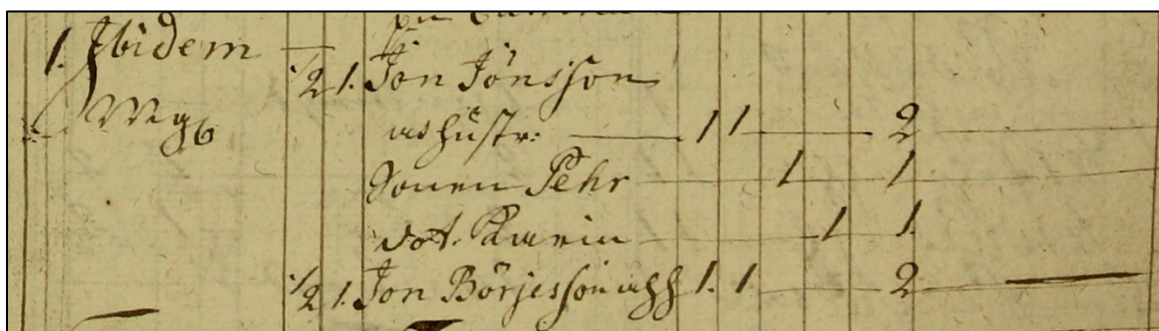 1. Ibidem — 1/2 1. Jon Jönsson
mhustr: — 1 1 — 2
Sonen Pehr — 1 — 1
dot. Karin — 1 1
1/2 1. Jon Börjesson mh 1. 1. — 2 —